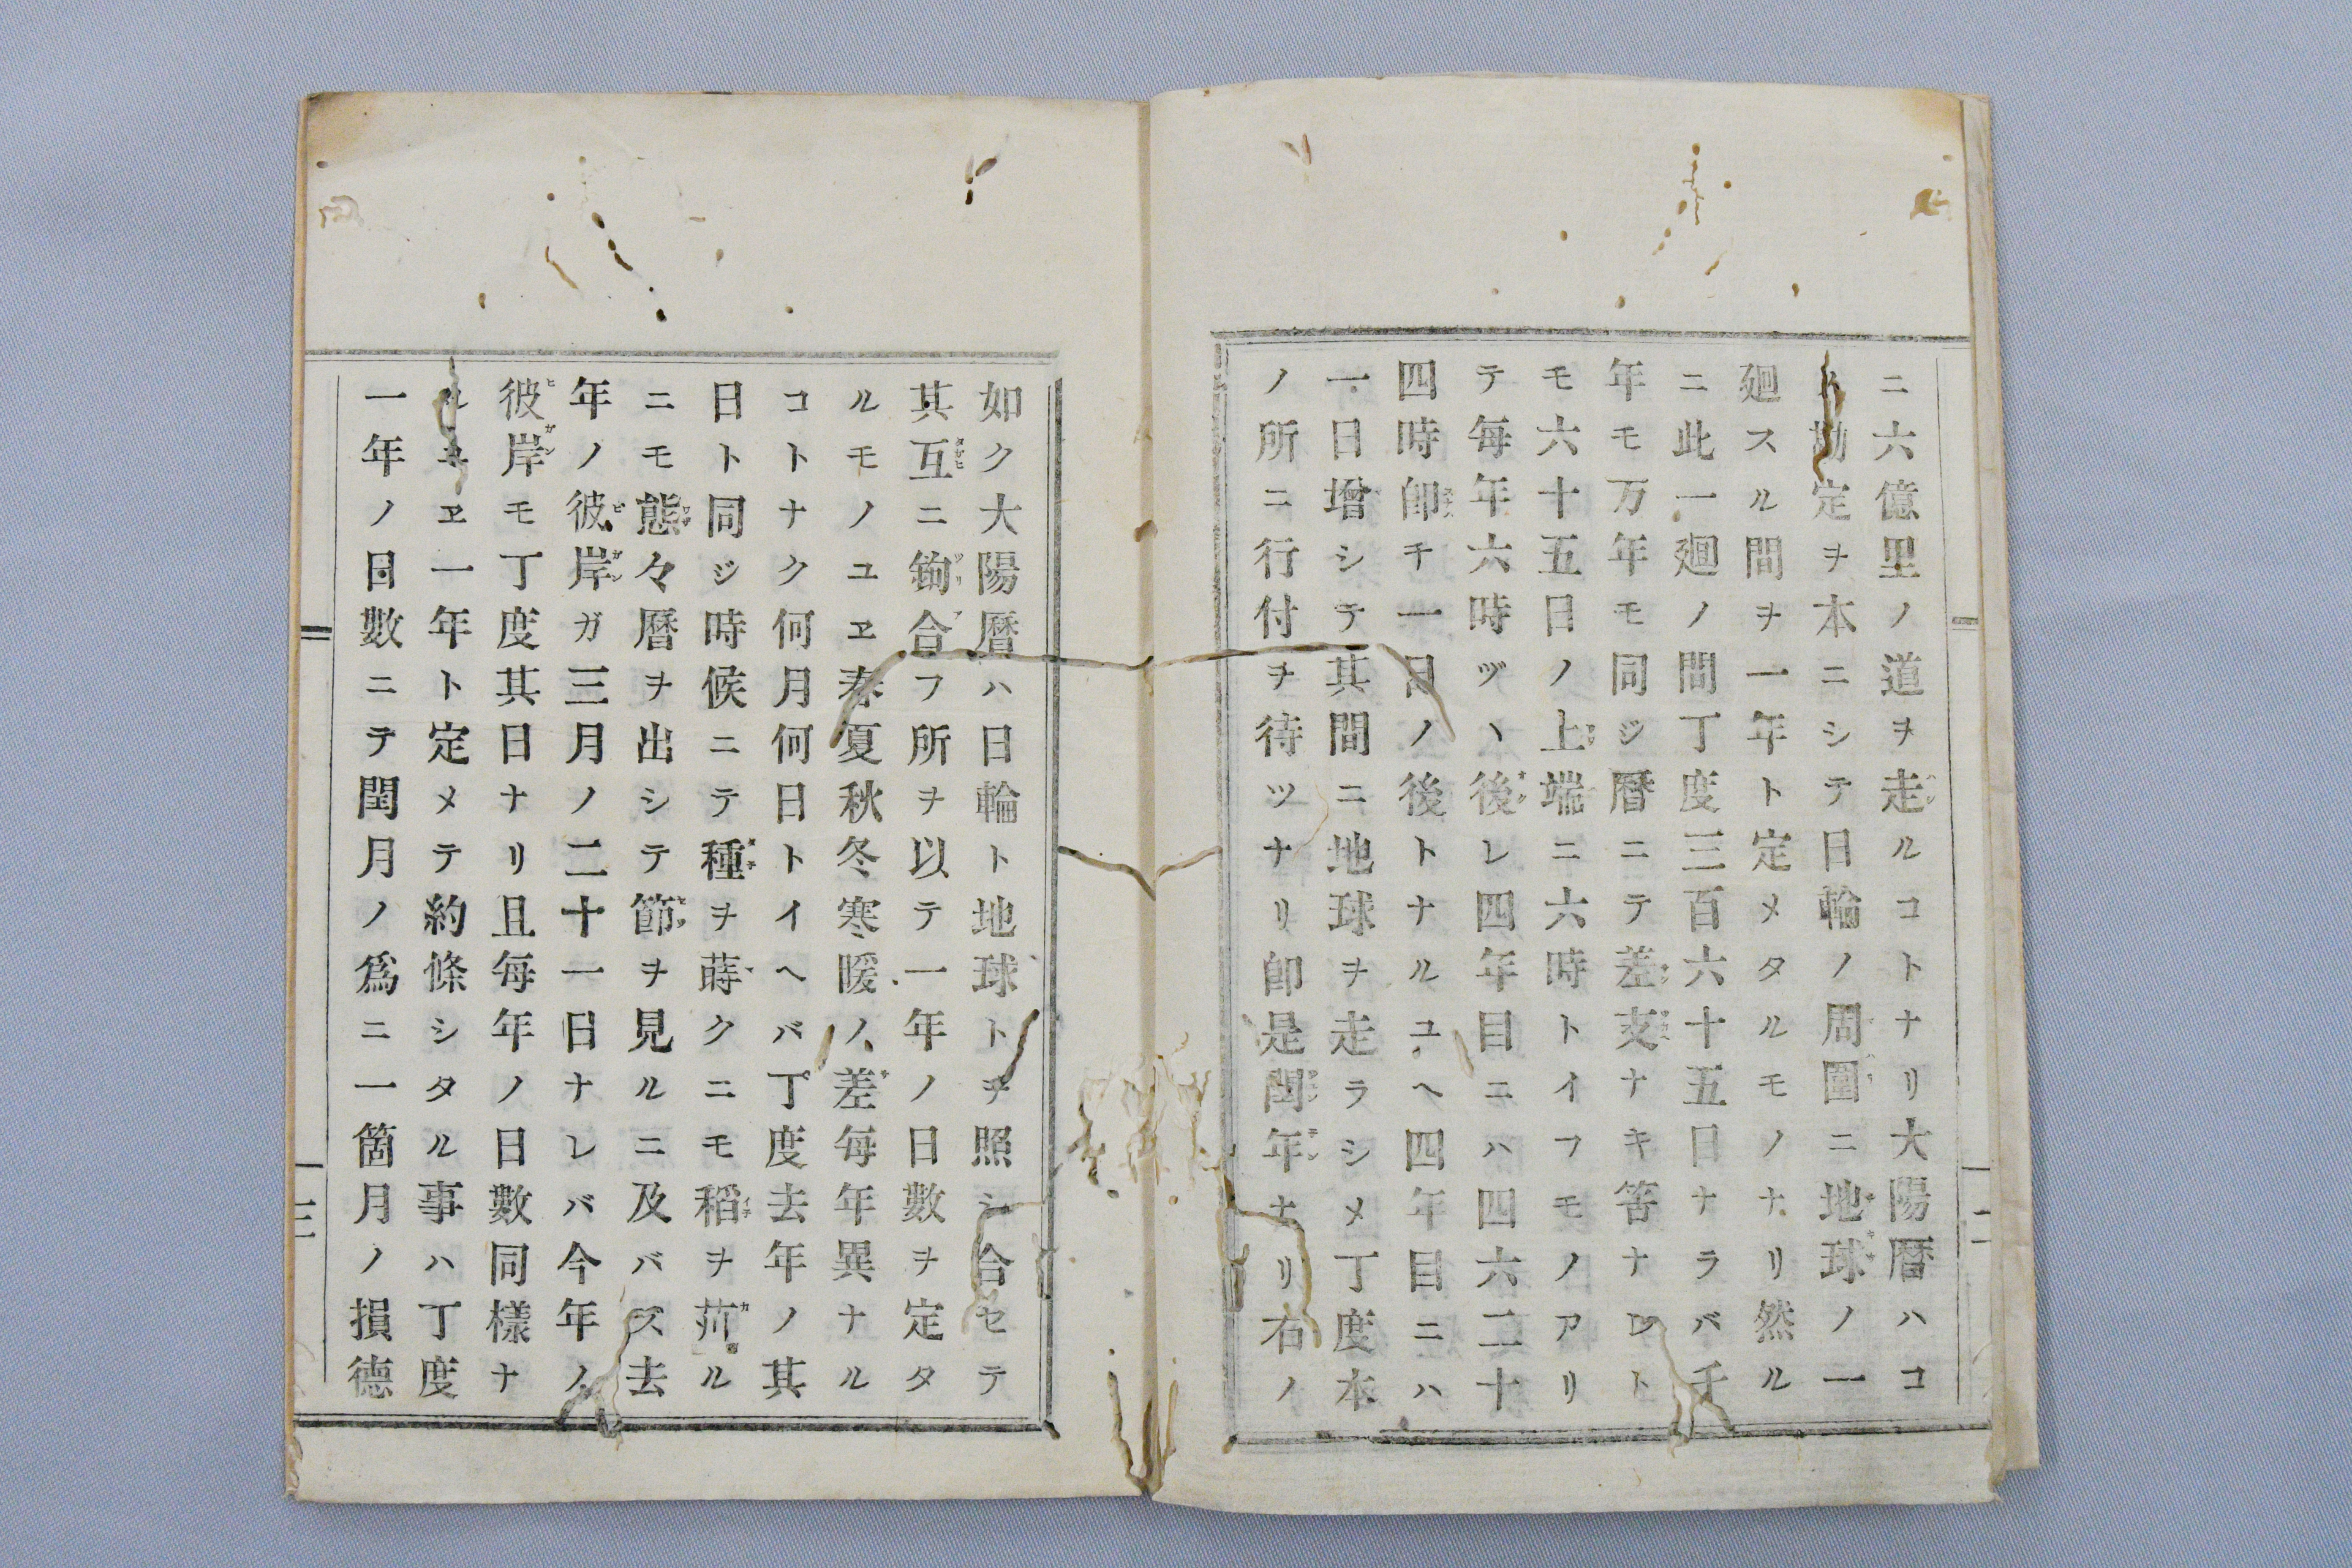 ニ六億里ノ道ヲ走ルコトナリ大陽暦ハコ
勘定ヲ本ニシテ日輪ノ周圍ニ地球ノ一
廻スル間ヲ一年ト定メタルモノナリ然ル
ニ此一廻ノ間丁度三百六十五日ナラバ千
年モ万年モ同ジ暦ニテ差支ナキ筈ナレト
モ六十五日ノ上端ニ六時トイフモノアリ
テ毎年六時ヅヽ後レ四年目ニハ四六二十
四時卽チ一日ノ後トナルユヘ四年目ニハ
一日增シテ其間ニ地球ヲ走ラシメ丁度本
ノ所ニ行付ヲ待ツナリ卽是閏年ナリ右ノ
二
如ク大陽暦ハ日輪ト地球トヲ照シ合セテ
其互ニ釣合フ所ヲ以テ一年ノ日數ヲ定タ
ルモノユヱ春夏秋冬寒暖ノ差毎年異ナル
コトナク何月何日トイヘバ丁度去年ノ其
日ト同ジ時候ニテ種ヲ蒔クニモ稻ヲ苅ル
ニモ態々暦ヲ出シテ節ヲ見ルニ及バズ去
年ノ彼岸ガ三月ノ二十一日ナレバ今年ノ
彼岸モ丁度其日ナリ且毎年ノ日數同樣ナ
ルユヱ一年ト定メテ約條シタル事ハ丁度
一年ノ日數ニテ閏月ノ爲ニ一箇月ノ損德
三